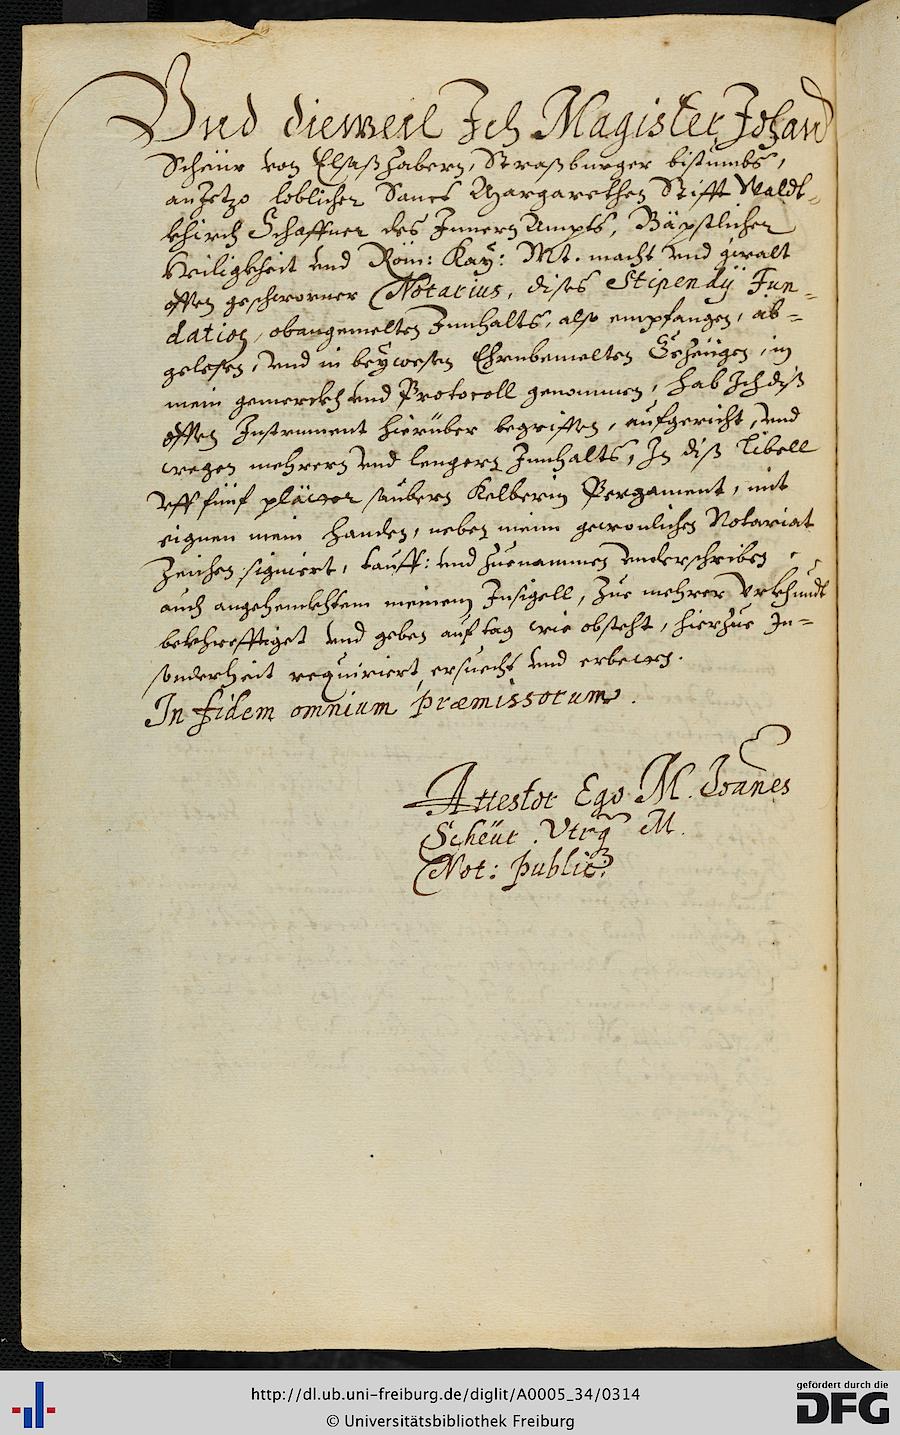 Vnd dieweil Ich Magister Johan
Scheür von Elsaßzabern, Straßburger bistumbs,
anJetzo loblicher Sanct Margarethen Stifft Waldt-
khirch Schaffner des Innern Ampts, Bäpstlicher
Heiligkheit vnd Röm: Kay: Mt. macht vnd gwalt
offen geschworner Notarius, dises Stipendÿ Fun-
dation, obangemelten Innhalts, also empfangen, ab-
gelesen, vnd in beÿwesen Ehrnbemelten Gezeügen, in
mein gemerckh vnd Protocoll genommen, hab Ich diß
offen Instrument hierüber begriffen, aufgericht, vnd
wegen mehrern vnd lengern Innhalts, In diß libell
vff fünf pläter saubern Kelberin Pergament, mit
eignen mein handen, neben meim gewonlichen Notariat
Zeichen signiert, tauff: vnd Zuenammen vnderschriben
auch angehenckhtem meinem Insigell, Zue mehrer Vrkhundt
bekhrefftiget vnd geben auf tag wie obsteht, hierzue In-
sonderheit requiriert, ersuecht vnd erbetten.
In fidem omnium præmissorum.
Attestor Ego M. Joanes
Scheür. Vtrq M.
Not: public9.
http://dl.ub.uni-freiburg.de/diglit/A0005_34/0314
© Universitätsbibliothek Freiburg
gefördert durch die
DFG